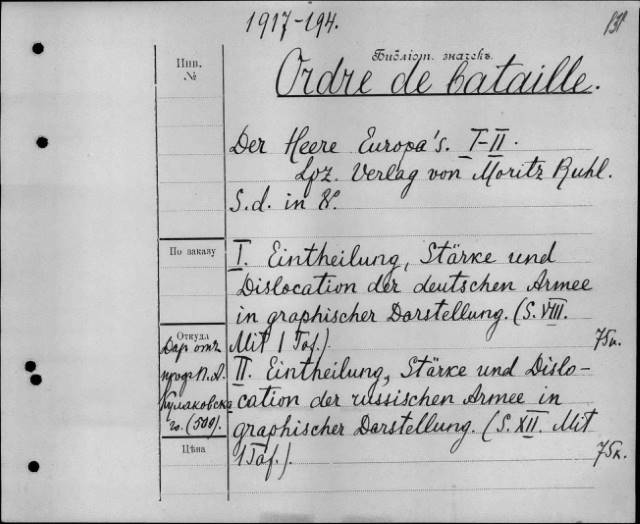 1917-194.
Библіот. значекъ.
Ordre de bataille.
Инв.
№
Der Heere Europa's. I-II.
Lpz. Verlag von Moritz Ruhl.
S.d. in 8º.
По заказу
I. Eintheilung, Stärke und
Dislocation der deutschen Armee
in graphischer Darstellung. (S. VIII.
Mit 1 Taf.) 75к.
Откуда
Даръ отъ
проф. П. А.
Кулаковска
го. (500).
II. Eintheilung, Stärke und Dislo-
cation der russischen Armee in
graphischer Darstellung. (S. XII. Mit
1 Taf.). 75к.
Цѣна